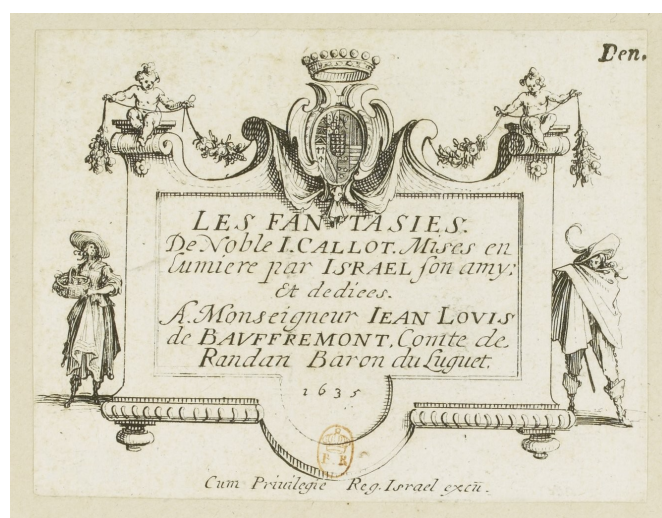 Den.
LES FANTASIES.
De Noble I. CALLOT. Mises en
lumiere par ISRAEL son amy;
Et dediees.
A. Monseigneur IEAN LOVIS
de BAVFFREMONT, Comte de
Randan Baron du Luguet.
1635
Cum Priuilegie Reg. Israel excū.